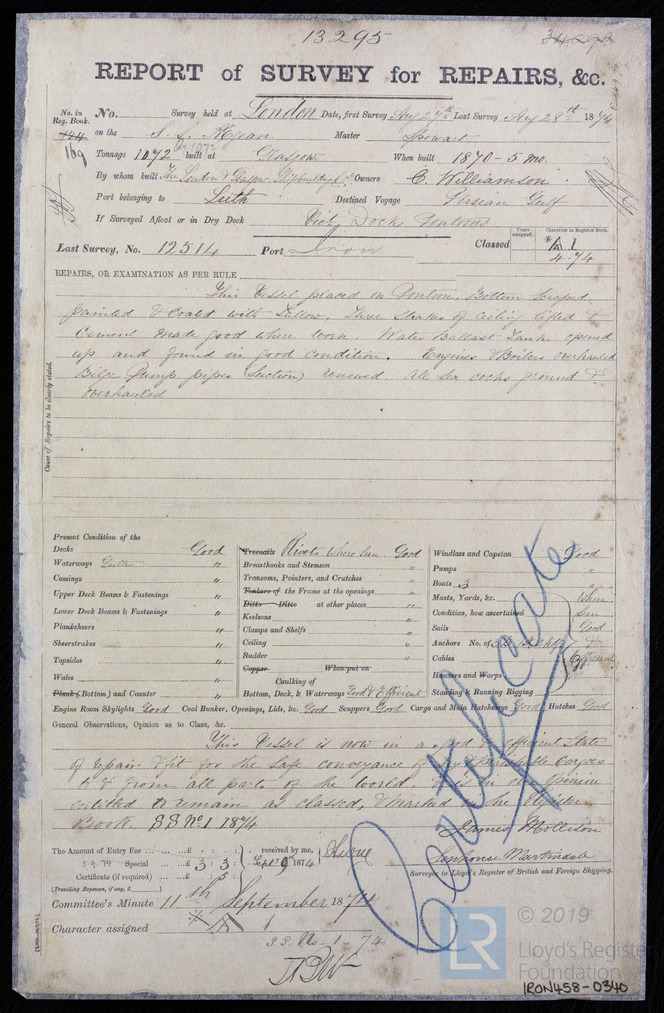 13295
REPORT of SURVEY for REPAIRS, &c.
No. in Reg. Book. No. Survey held at London Date, first Survey Aug 27th Last Survey Aug 28th 1874
169 on the S. S. Master Stewart
Tonnage 1072 built at Glasgow When built 1870 - 5 mo.
By whom built The London & Glasgow Shipbuilding Co Owners C. Williamson
Port belonging to Leith Destined Voyage Persian Gulf
If Surveyed Afloat or in Dry Dock Vict. Docks Pontoons
Years assigned. Character in Register Book.
Last Survey, No. 12514 Port Iron Classed A 1
4.74
REPAIRS, OR EXAMINATION AS PER RULE
This Vessel placed on Pontoon. Bottom scraped
painted & coated with Tallow. Three Strakes of ceiling lifted &
Cement made good where worn. Water Ballast Tank opened
up and found in good condition. Engines & Boilers overhauled
Bilge Pump pipes (Suction) renewed All Sea cocks ground &
overhauled
Cause of Repairs to be clearly stated.
Present Condition of the
Decks Good
Waterways "
Comings "
Upper Deck Beams & Fastenings "
Lower Deck Beams & Fastenings "
Planksheers "
Sheerstrakes "
Topsides "
Wales "
Plank (Bottom) and Counter "
Treenails Rivets where seen Good
Breasthooks and Stemson "
Transoms, Pointers, and Crutches "
Timbers of the Frame at the openings "
Ditto Ditto at other places "
Keelsons "
Clamps and Shelfs "
Ceiling "
Rudder "
Copper When put on
Caulking of
Bottom, Deck, & Waterways Good & Efficient
Windlass and Capstan Good
Pumps "
Boats 3 "
Masts, Yards, &c. Where
Condition, how ascertained seen
Sails Good
Anchors No. of
Cables Efficient
Hawsers and Warps
Standing & Running Rigging
Engine Room Skylights Good Coal Bunker, Openings, Lids, &c. Good Scuppers Good Cargo and Main Hatchways Good Hatches Good
General Observations, Opinion as to Class, &c.
This Vessel is now in a good & efficient State
of repair & fit for the safe conveyance of dry & Perishable Cargoes
to & from all parts of the world. & is in our opinion
entitled to remain as classed, & marked in the Register
Book SS No 1 1874
Certificate
James Mollison
Martindale
Surveyor to Lloyd's Register of British and Foreign Shipping.
The Amount of Entry Fee ... £ : : received by me,
5.9.74 Special ... £ 3 : 3 : Sept 9th 1874
Certificate (if required) ... £ : 5 :
(Travelling Expenses, if any, £ )
Committee's Minute 11th September 1874
Character assigned A 1
S.S. No 1-74
© 2019
LR Lloyd's Register
Foundation
IRON458-0340